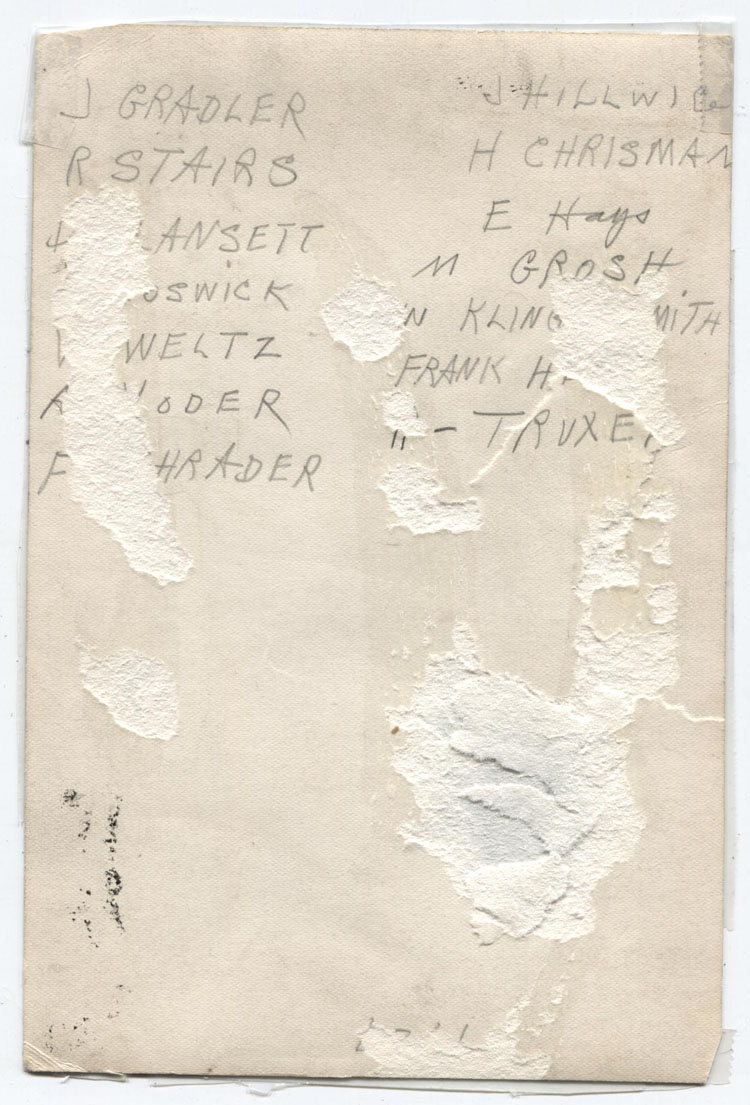 J GRADLER
R STAIRS
LANSETT
OSWICK
WELTZ
ODER
HRADER
J HILLWIG
H CHRISMAN
E Hays
M GROSH
N KLING MITH
FRANK H
H - TRUXE